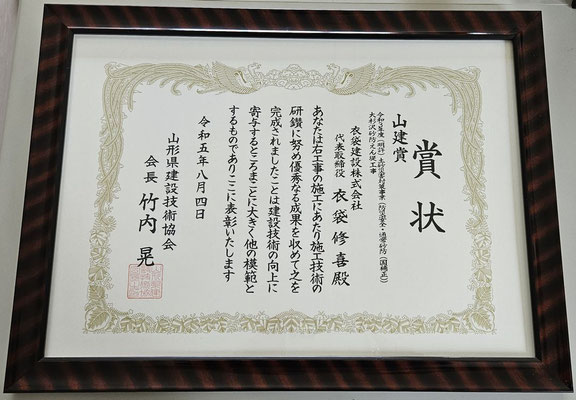 賞状
山建賞
大杉沢砂防えん堤工事
衣袋建設株式会社
代表取締役 衣袋修喜殿
あなたは右工事の施工にあたり施工技術の
研鑽に努め優秀なる成果を収めて之を
完成されましたことは建設技術の向上に
寄与するところまことに大きく他の模範と
するものでありここに表彰いたします
令和五年八月四日
山形県建設技術協会
会長 竹内晃